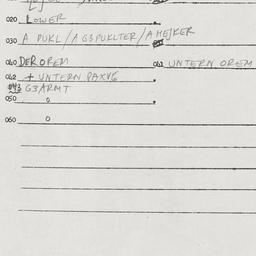 020 LOWER
030 A PUKL/A G3PUKLTER/A MEJKER
040 DER OREM 041 UNTERN OREM
042 + UNTERN PAXVE
043 G3ARMT
050 0
060 0